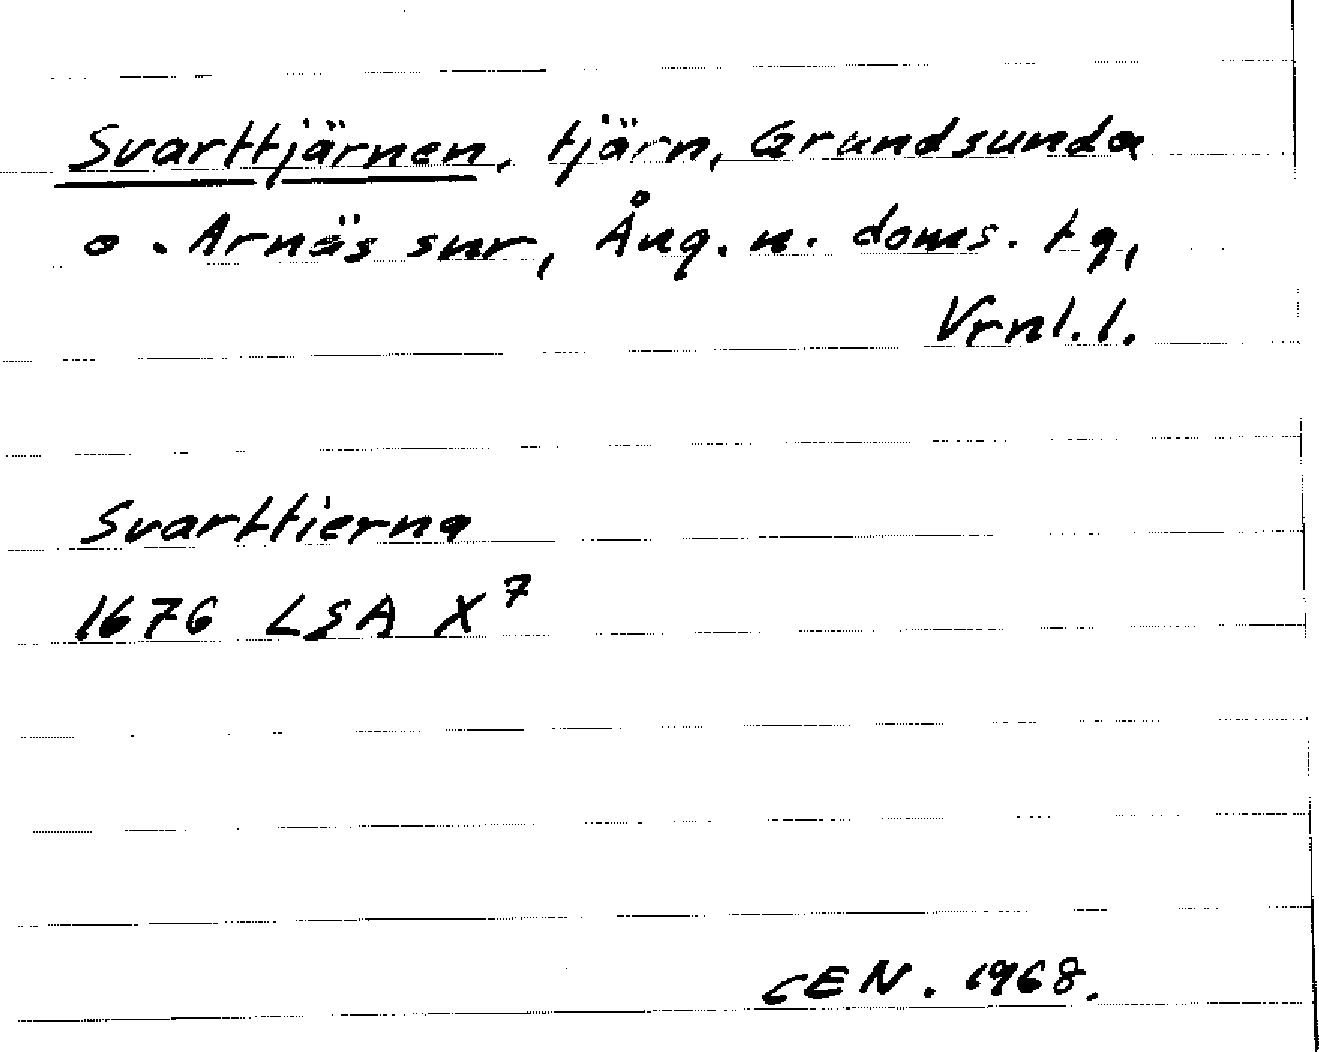 Svarttjärnen, tjärn, Grundsunda
o. Arnäs snr, Ång. n. doms. tg,
Vrnl. l.
Svarttierna
1676 LSA X⁷
CEN. 1968.